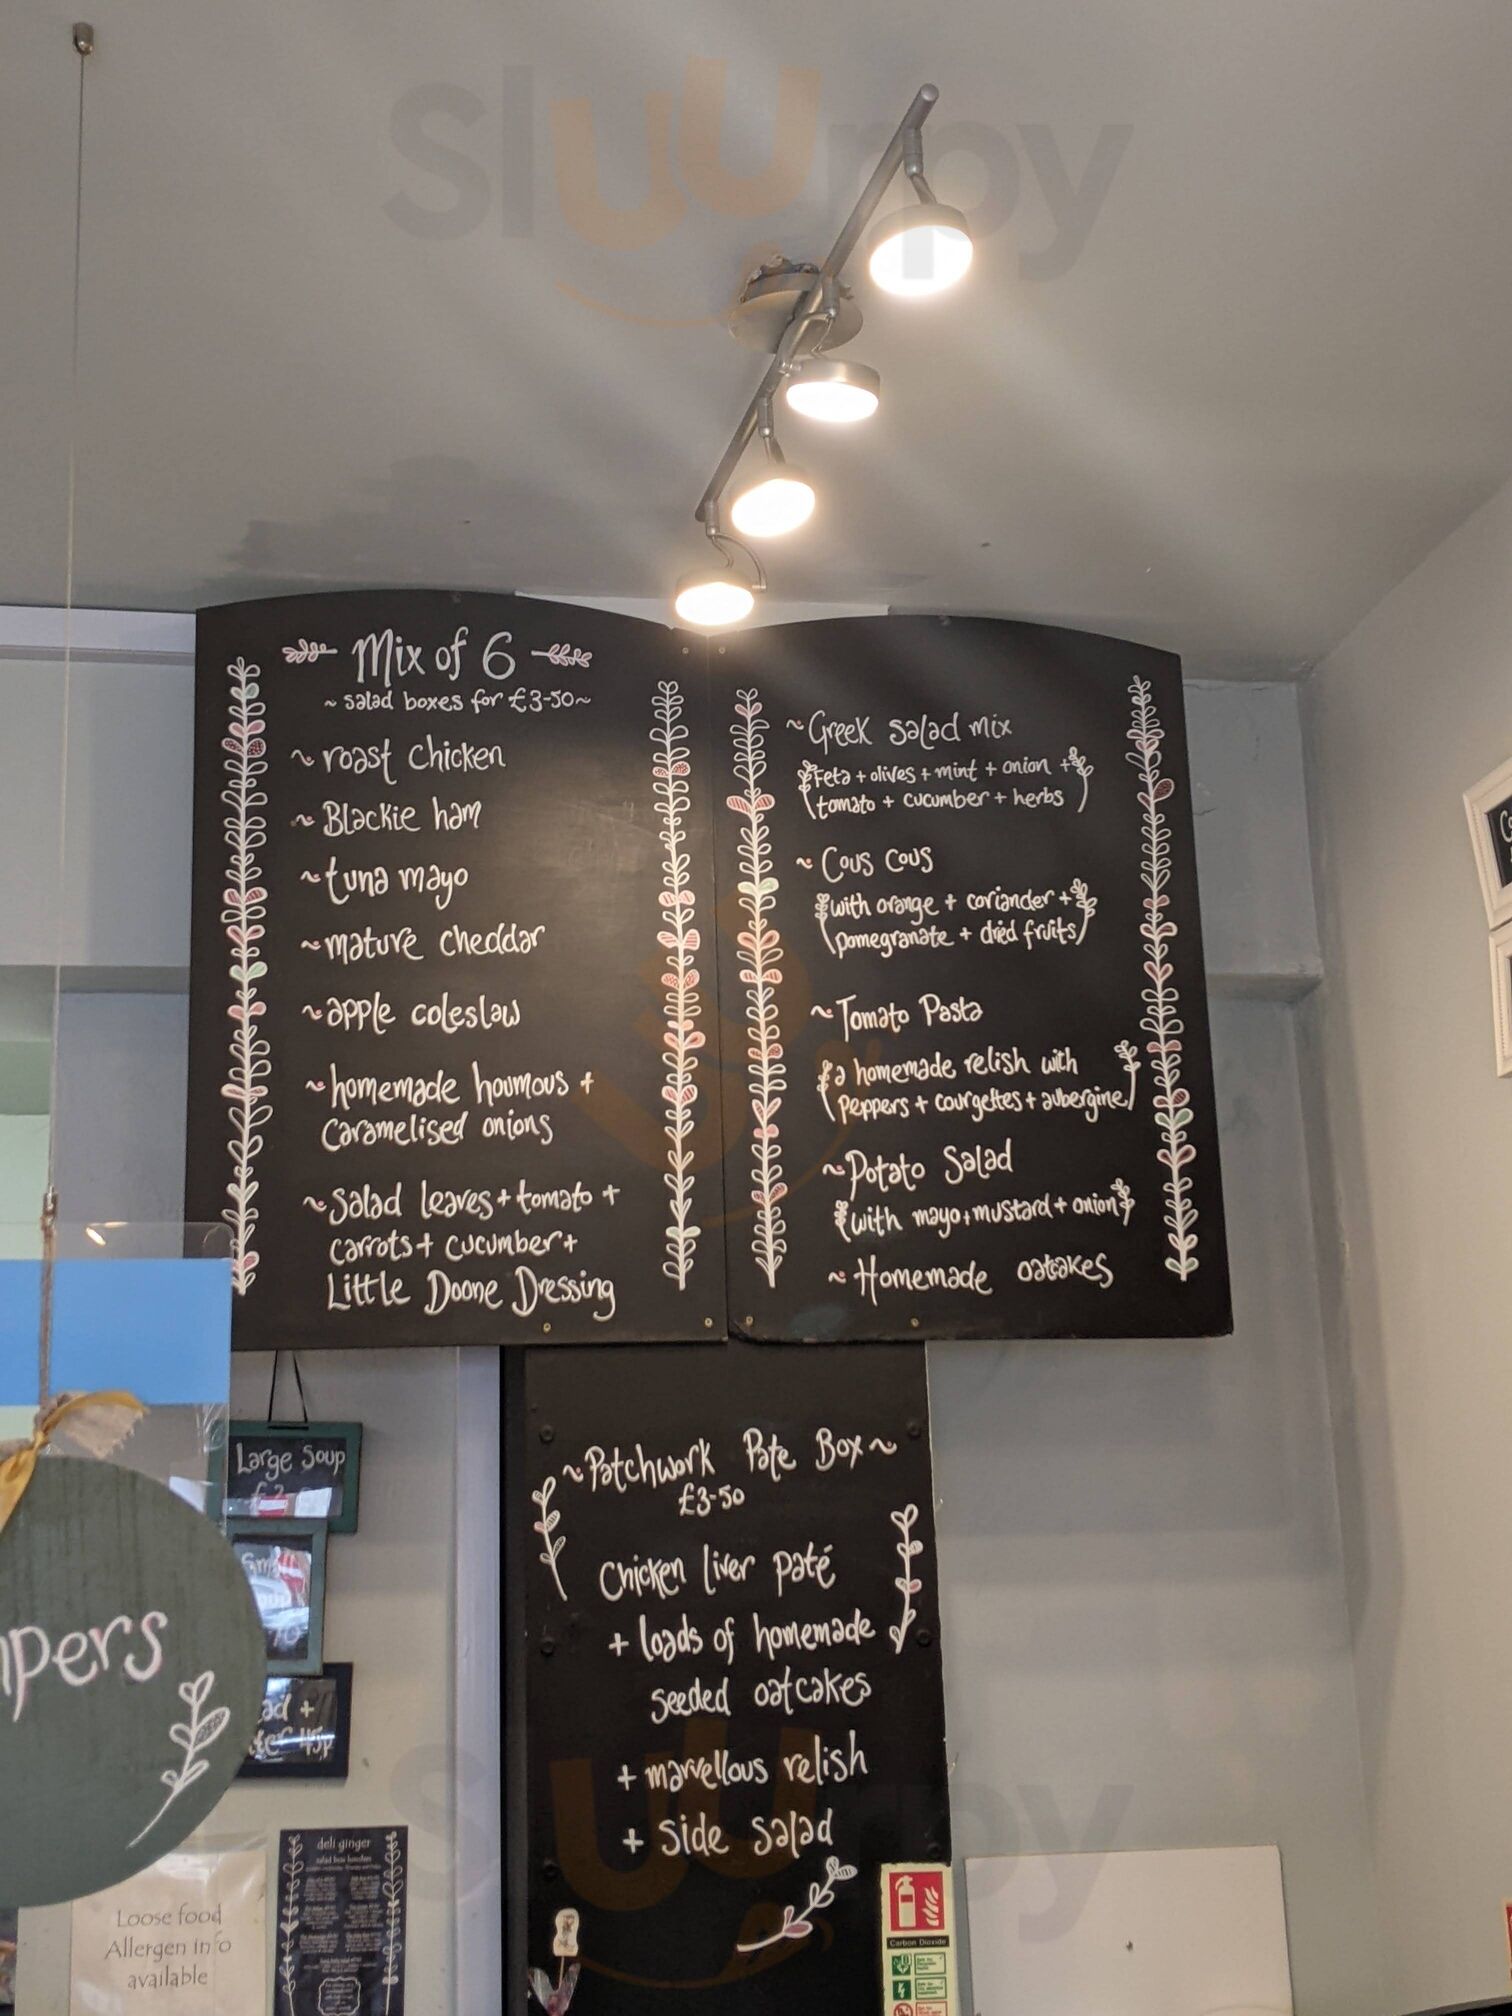 Sluurpy
Mix of 6
~ salad boxes for £3-50 ~
~ roast chicken
~ Blackie ham
~ tuna mayo
~ mature cheddar
~ apple coleslaw
~ homemade houmous +
caramelised onions
~ Salad leaves + tomato +
carrots + cucumber +
Little Doone Dressing
~ Greek salad mix
Feta + olives + mint + onion +
tomato + cucumber + herbs
~ Cous cous
with orange + coriander +
pomegranate + dried fruits
~ Tomato Pasta
a homemade relish with
peppers + courgettes + aubergine
~ Potato Salad
with mayo + mustard + onion
~ Homemade oatcakes
~ Patchwork Pate Box ~
£3-50
Chicken liver paté
+ loads of homemade
seeded oatcakes
+ marvellous relish
+ side salad
Large Soup
mpers
ad +
45p
deli ginger
Loose food
Allergen info
available
Carbon Dioxide
Sluurpy